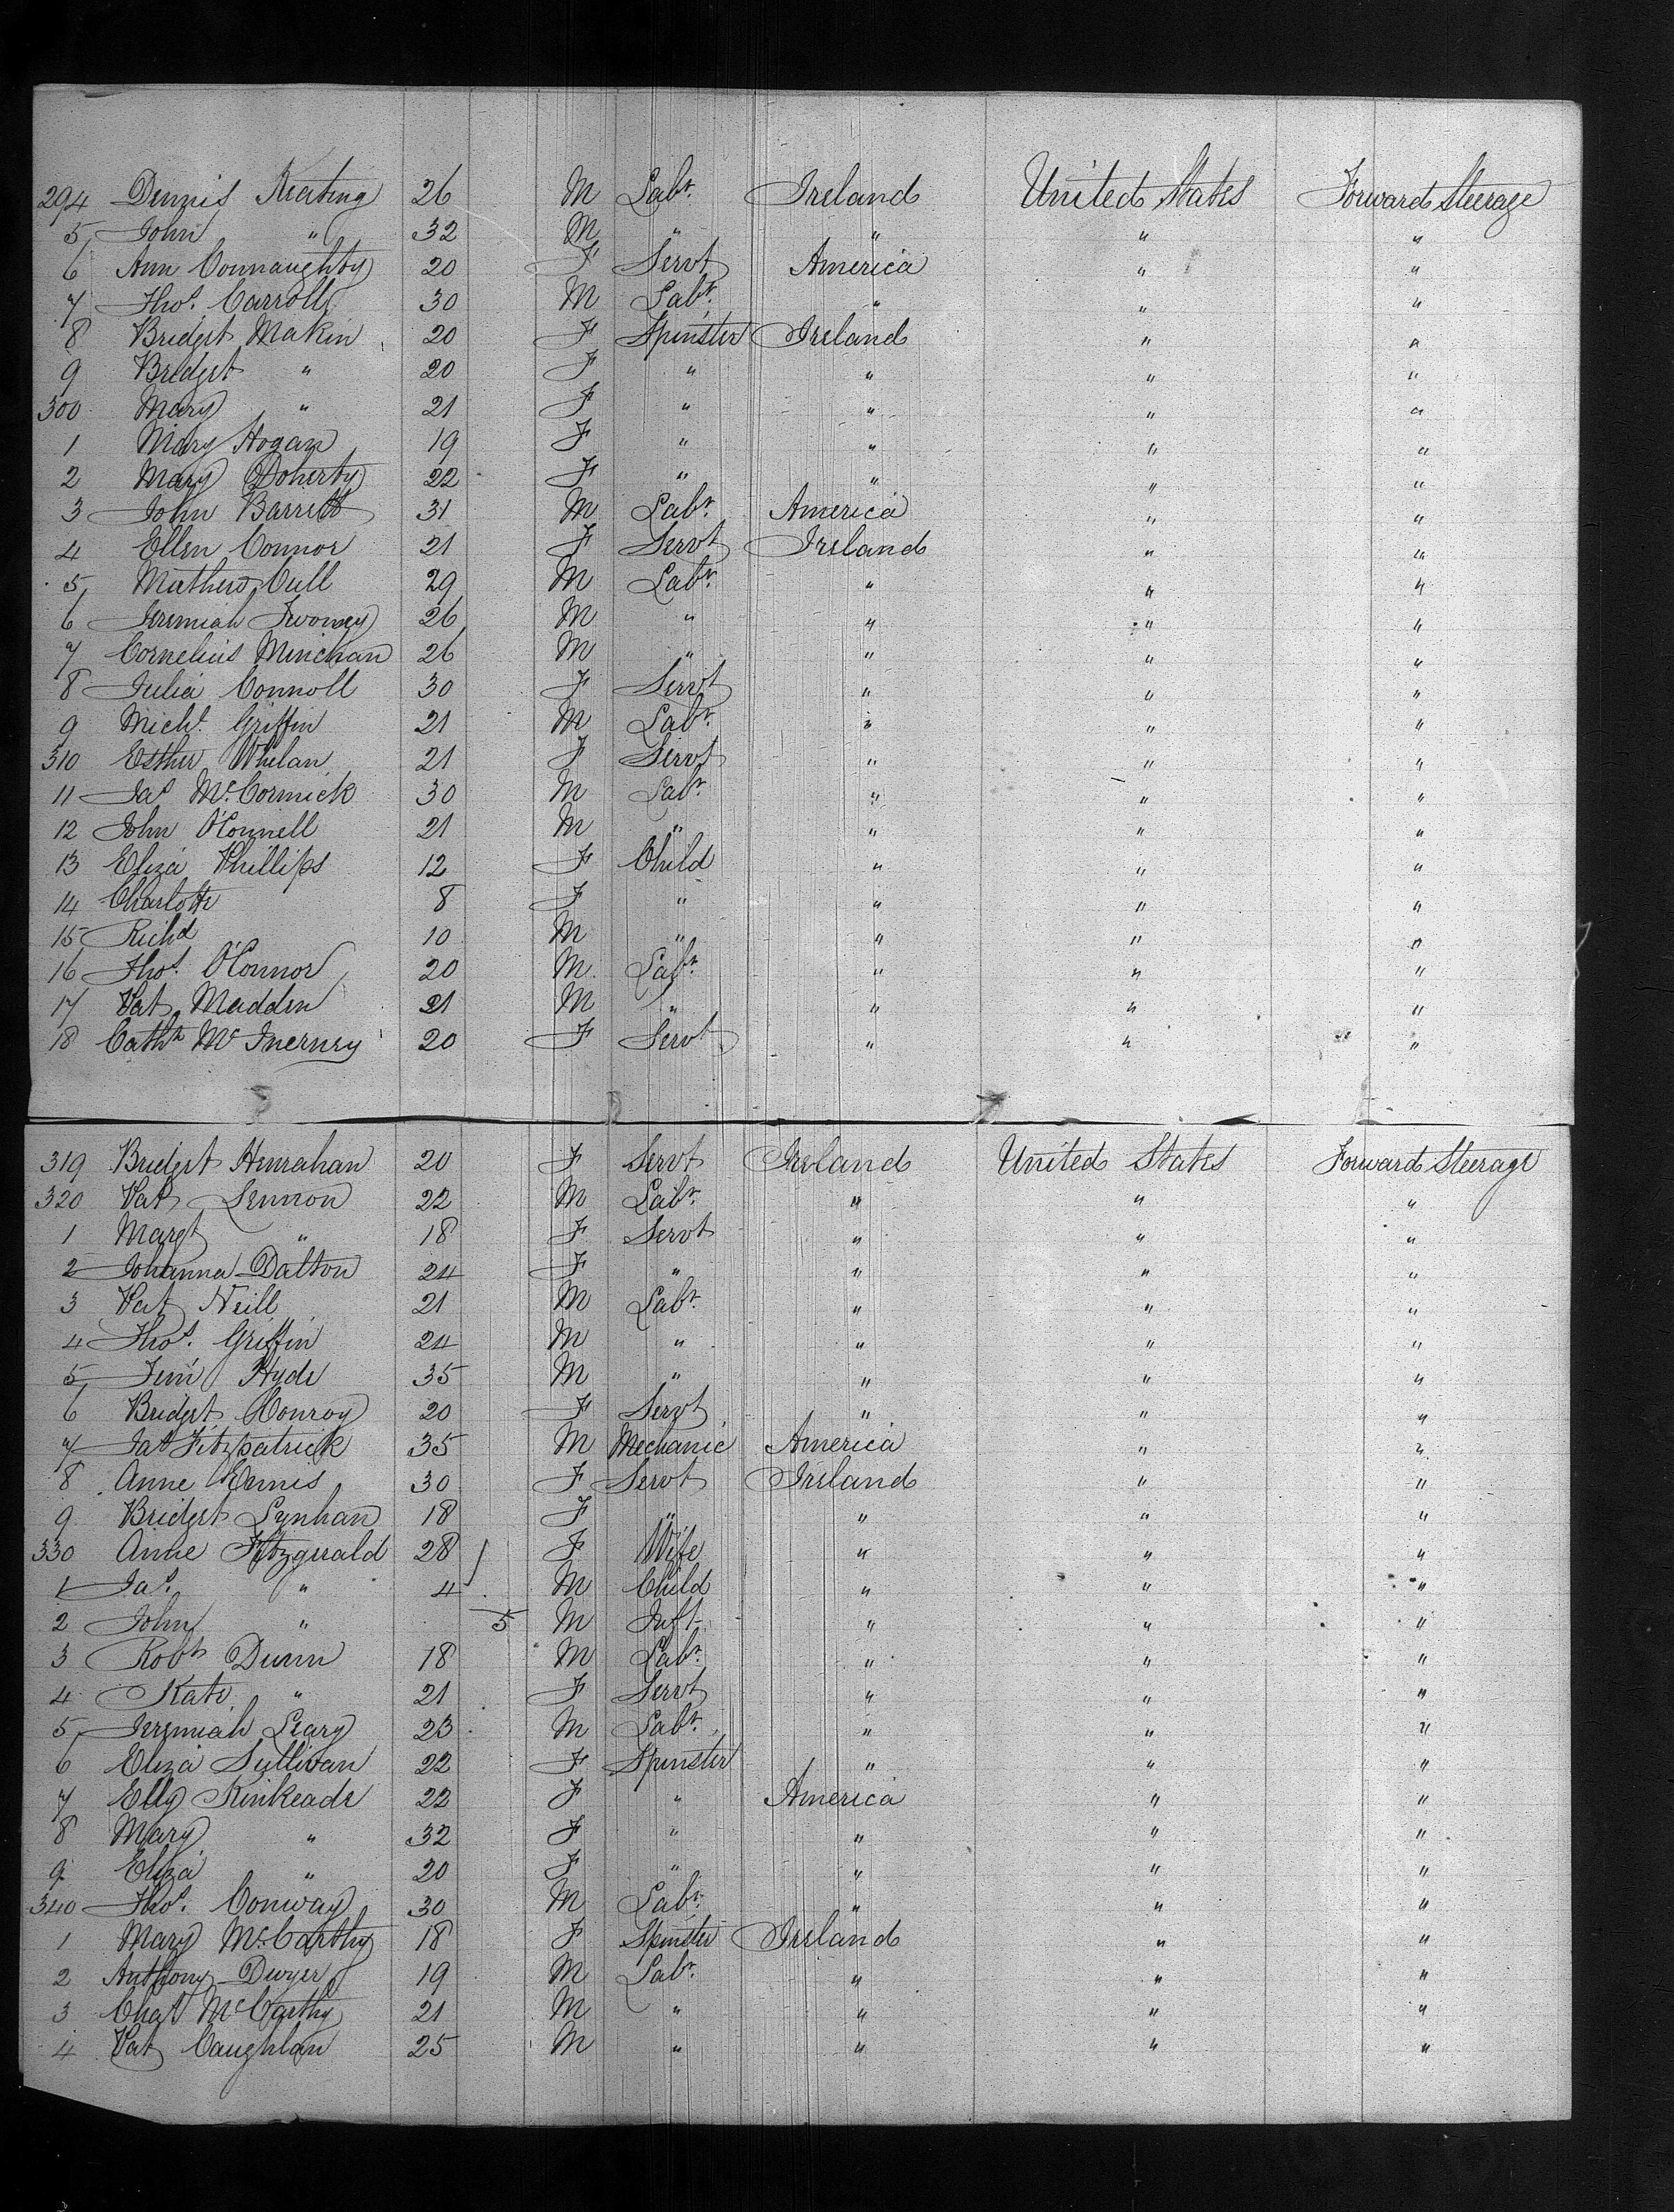 294 Dennis Keating 26 M Labr. Ireland United States Forward Steerage
5 John " 32 M " " " "
6 Ann Connaughty 20 F Servt America " "
7 Thos. Carroll 30 M Labr. " " "
8 Bridget Makin 20 F Spinster Ireland " "
9 Bridget " 20 F " " " "
300 Mary " 21 F " " " "
1 Mary Hogan 19 F " " " "
2 Mary Doherty 22 F " " " "
3 John Barrett 31 M Labr. America " "
4 Ellen Connor 21 F Servt Ireland " "
5 Mathew Cull 29 M Labr. " " "
6 Jeremiah Twomey 26 M " " " "
7 Cornelius Minehan 26 M " " " "
8 Julia Connoll 30 F Servt " " "
9 Michl. Griffin 21 M Labr. " " "
310 Esther Whelan 21 F Servt " " "
11 Jas McCormick 30 M Labr. " " "
12 John O'Connell 21 M " " " "
13 Eliza Phillips 12 F Child " " "
14 Charlotte 8 F " " " "
15 Richd 10 M " " " "
16 Thos. O'Connor 20 M Labr. " " "
17 Pat Madden 21 M " " " "
18 Cathn McInerney 20 F Servt " " "
319 Bridget Henrahan 20 F Servt Ireland United States Forward Steerage
320 Pat Lennon 22 M Labr. " " "
1 Margt " 18 F Servt " " "
2 Johanna Dalton 24 F " " " "
3 Pat Neill 21 M Labr. " " "
4 Thos. Griffin 24 M " " " "
5 Jerm Hyde 35 M " " " "
6 Bridget Conroy 20 F Servt " " "
7 Jas Fitzpatrick 35 M Mechanic America " "
8 Anne Ennis 30 F Servt Ireland " "
9 Bridget Lynhan 18 F " " " "
330 Anne Fitzgerald 28 F Wife " " "
1 Jas. " 4 M Child " " "
2 John " 5 M Inft " " "
3 Robt Dunn 18 M Labr. " " "
4 Kate " 21 F Servt " " "
5 Jeremiah Leary 23 M Labr. " " "
6 Eliza Sullivan 22 F Spinster " " "
7 Elly Kinkeade 22 F " America " "
8 Mary " 32 F " " " "
9 Eliza " 20 F " " " "
340 Thos. Conway 30 M Labr. " " "
1 Mary McCarthy 18 F Spinster Ireland " "
2 Anthony Dwyer 19 M Labr. " " "
3 Chas McCarthy 21 M " " " "
4 Pat Caughlan 25 M " " " "